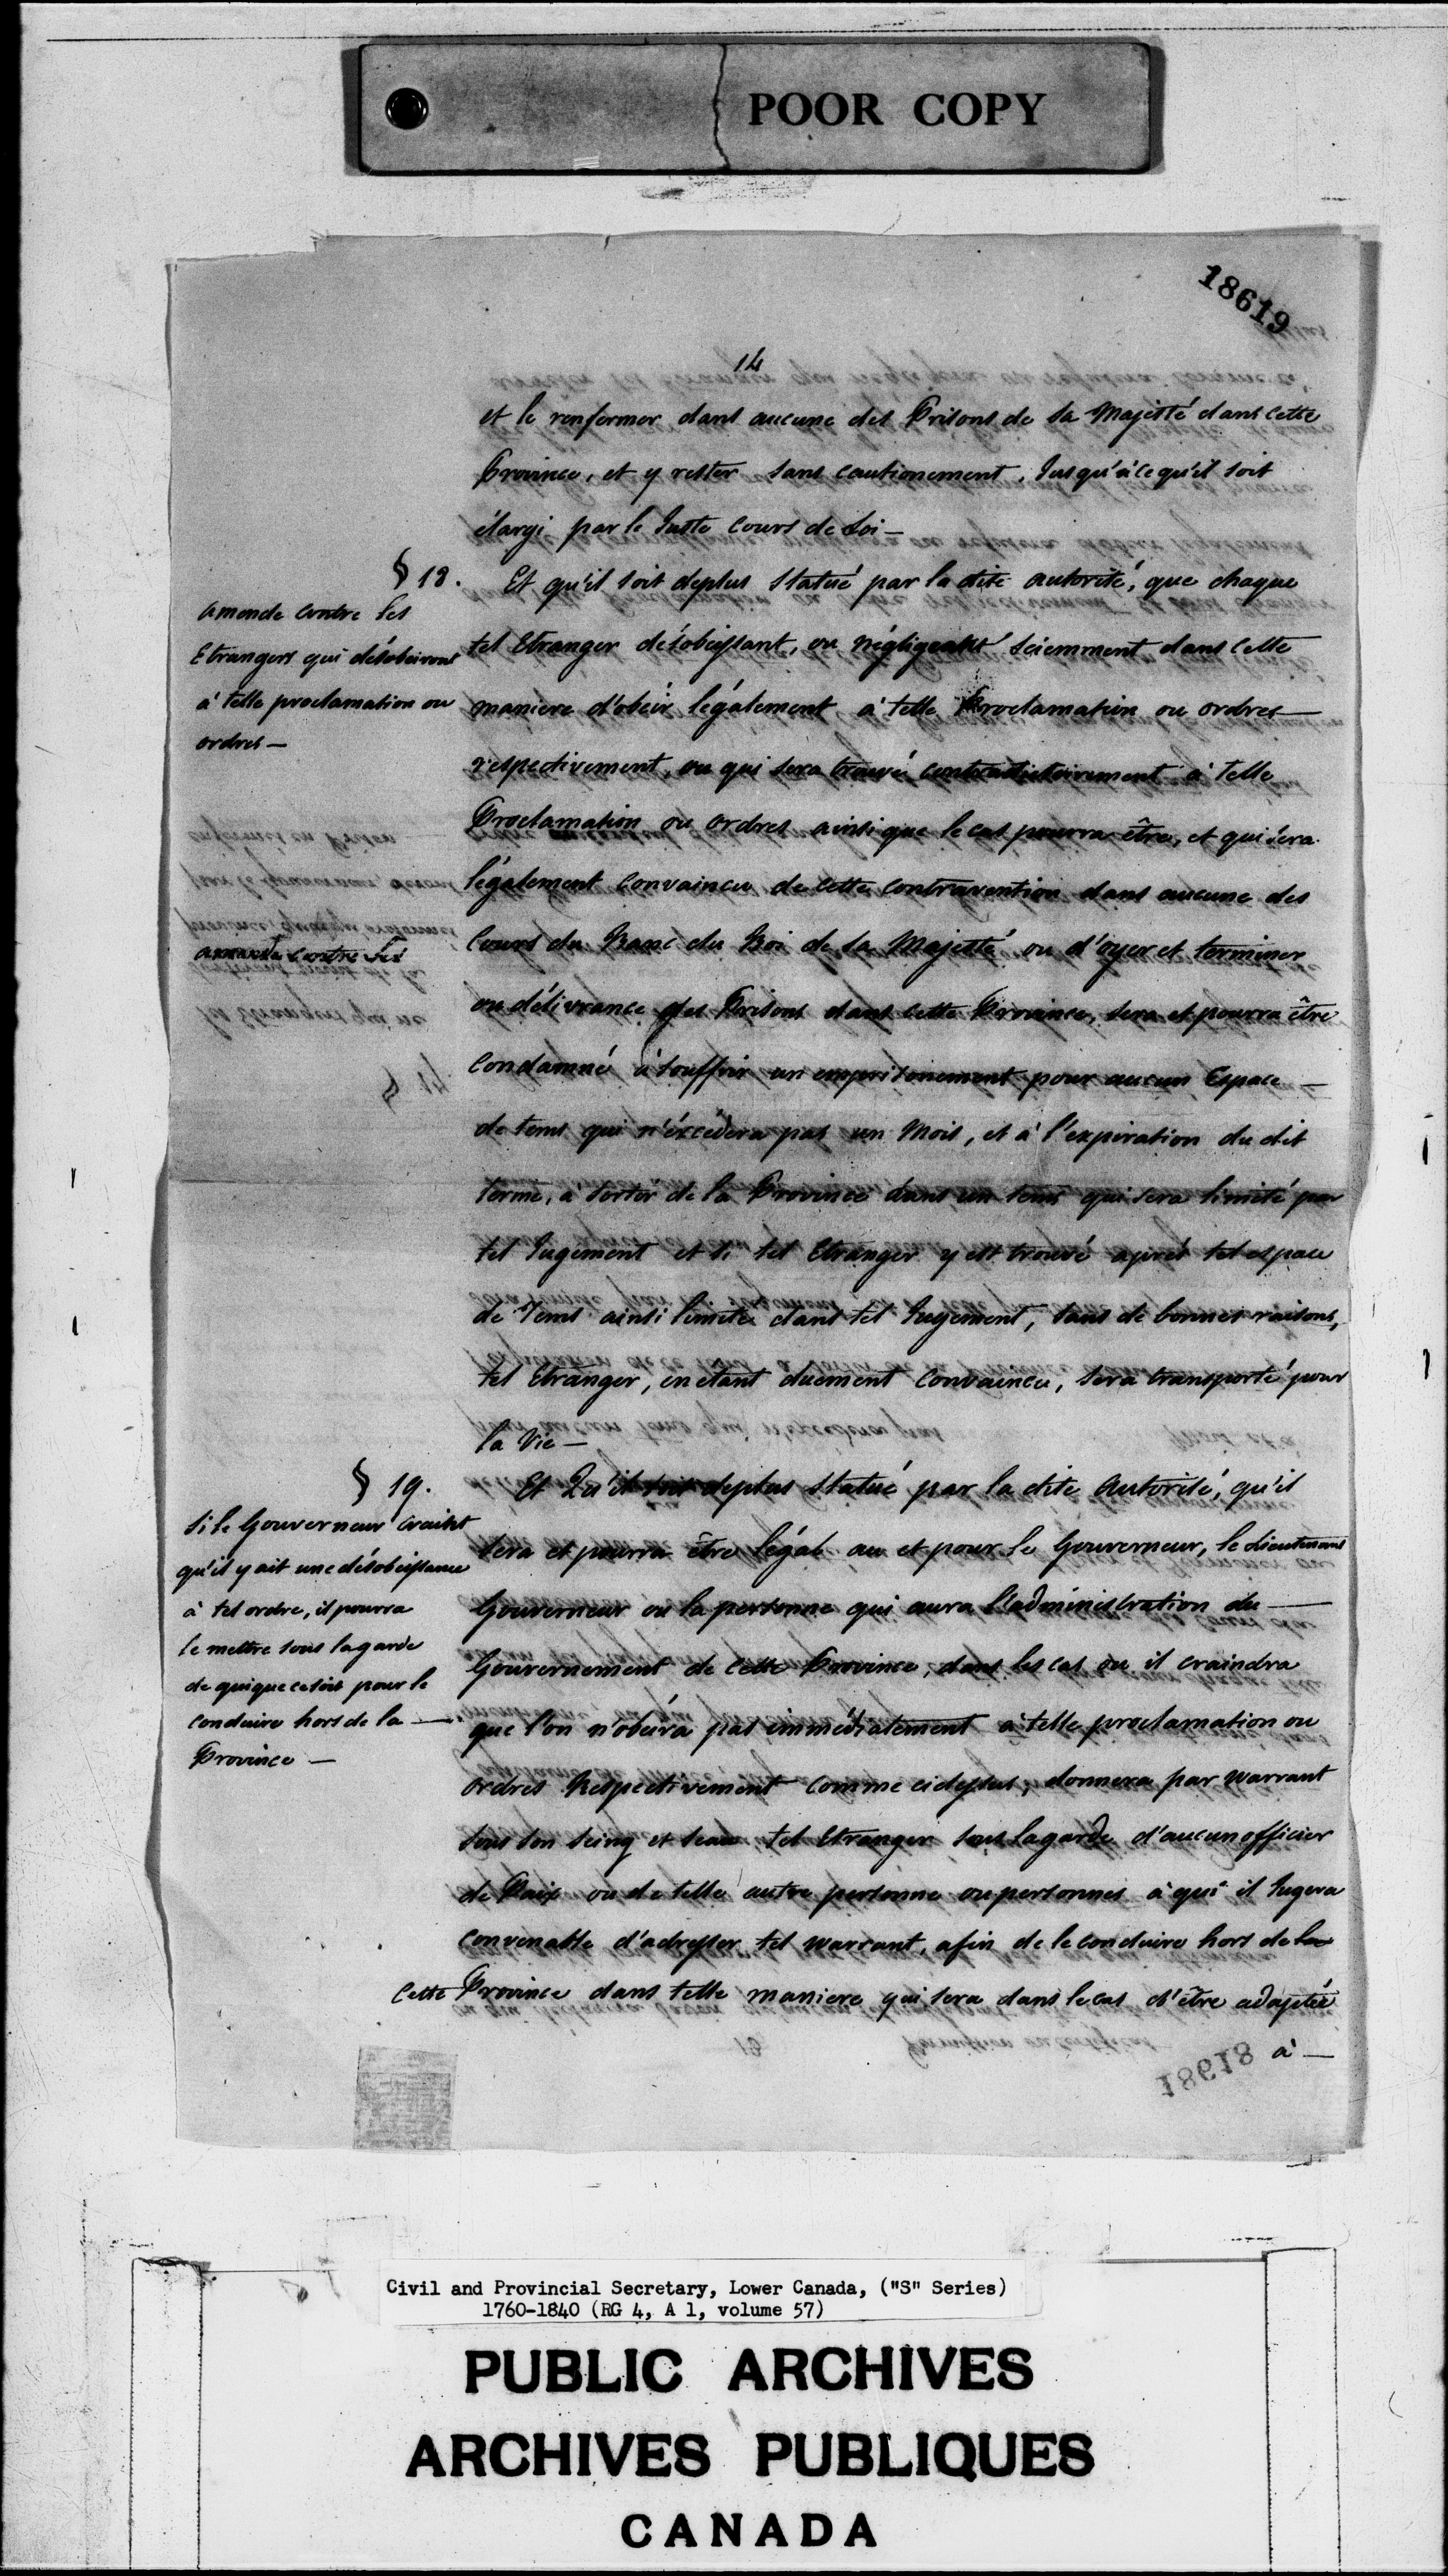 POOR COPY
18619
14
et le renfermer dans aucune des Prisons de sa Majesté dans cette
Province, et y rester sans cautionement, Jusqu'à ce qu'il soit
élargi par le Juste Cours de Loi —
§ 18.
Amende contre les
Etrangers qui désobeiront
à telle proclamation ou
ordres —
Et qu'il soit deplus Statué par la dite autorité, que chaque
tel Etranger désobeissant, ou négligeant sciemment dans cette
maniere d'obéir légalement à telle Proclamation ou ordres —
respectivement, ou qui sera trouvé contradictoirement à telle
Proclamation ou ordres ainsi que le cas pourra être, et qui sera
légalement Convaincu de cette contravention dans aucune des
Cours du Banc du Roi de sa Majesté ou d'oyer et terminer
ou délivrance des Prisons dans cette Province, sera et pourra être
Condamné à souffrir un emprisonement pour aucun Espace —
de tems qui n'éxcédera pas un Mois, et à l'expiration du dit
terme, à sortir de la Province dans un tems qui sera limité par
tel Jugement et si tel Etranger y est trouvé après tel espace
de Tems ainsi limite dans tel Jugement, sans de bonnes raisons,
tel Etranger, en etant duement Convaincu, sera transporté pour
la Vie —
amende contre les
§ 19.
Si le Gouverneur craint
qu'il y ait une désobeissance
à tel ordre, il pourra
le mettre sous la garde
de qui que ce soit pour le
conduire hors de la —
Province —
Et Qu'il soit deplus Statué par la dite Autorité, qu'il
sera et pourra être légal au et pour le Gouverneur, le Lieutenant
Gouverneur ou la personne qui aura l'administration du —
Gouvernement de cette Province, dans les cas ou il craindra
que l'on n'obeira pas immédiatement à telle proclamation ou
ordres Respectivement comme cidessus, donnera par Warrant
sous son seing et seau tel Etranger sous la garde d'aucun officier
de Paix ou de telle autre personne ou personnes à qui il Jugera
convenable d'adresser tel Warrant, afin de le conduire hors de la
Cette Province dans telle maniere qui sera dans le cas d'être adaptée
à —
18618
Civil and Provincial Secretary, Lower Canada, ("S" Series)
1760-1840 (RG 4, A 1, volume 57)
PUBLIC ARCHIVES
ARCHIVES PUBLIQUES
CANADA